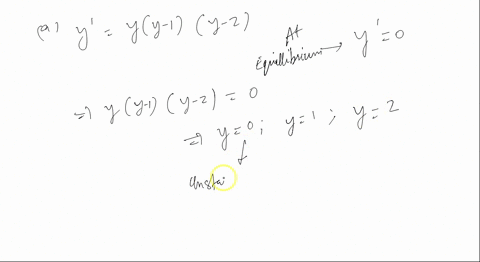 (a) y' = y(y-1) (y-2)
At Equillibrium → y' = 0
⇒ y(y-1)(y-2) = 0
⇒ y=0; y=1; y=2
unsta